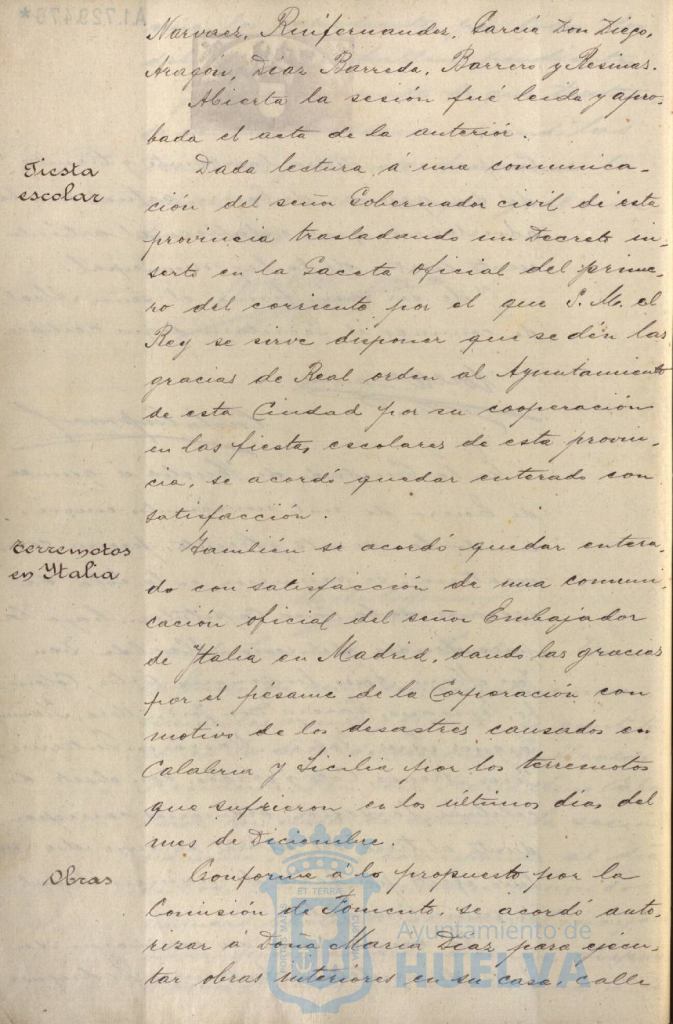 A1.729.479*
Narvaez, Rinfernandez, García Don Diego,
Aragón, Díaz Barreda, Barrero y Resinas.
Abierta la sesión fué leida y apro-
bada el acta de la anterior.
Fiesta
escolar
Dada lectura á una comunica-
ción del señor Gobernador civil de esta
provincia trasladando un Decreto in-
serto en la Gaceta oficial del prime-
ro del corriente por el que S. M. el
Rey se sirve disponer que se dén las
gracias de Real orden al Ayuntamiento
de esta Ciudad por su cooperación
en las fiestas escolares de esta provin-
cia, se acordó quedar enterado con
satisfacción.
Terremotos
en Ytalia
También se acordó quedar entera-
do con satisfacción de una comuni-
cación oficial del señor Embajador
de Ytalia en Madrid, dando las gracias
por el pésame de la Corporación con
motivo de los desastres causados en
Calabria y Sicilia por los terremotos
que sufrieron en los últimos días del
mes de Diciembre.
Obras
Conforme á lo propuesto por la
Comisión de Fomento, se acordó auto-
rizar á Doña María Díaz para ejecu-
tar obras interiores en su casa, calle
Ayuntamiento de
HUELVA